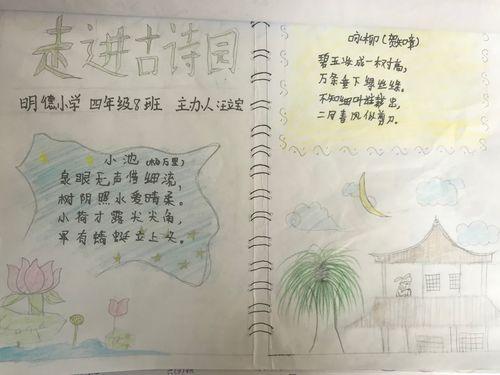 走进古诗园
明德小学 四年级8班 主办人
小池(杨万里)
泉眼无声惜细流,
树阴照水爱晴柔。
小荷才露尖尖角,
早有蜻蜓立上头。
咏柳(贺知章)
碧玉妆成一树高,
万条垂下绿丝绦。
不知细叶谁裁出,
二月春风似剪刀。